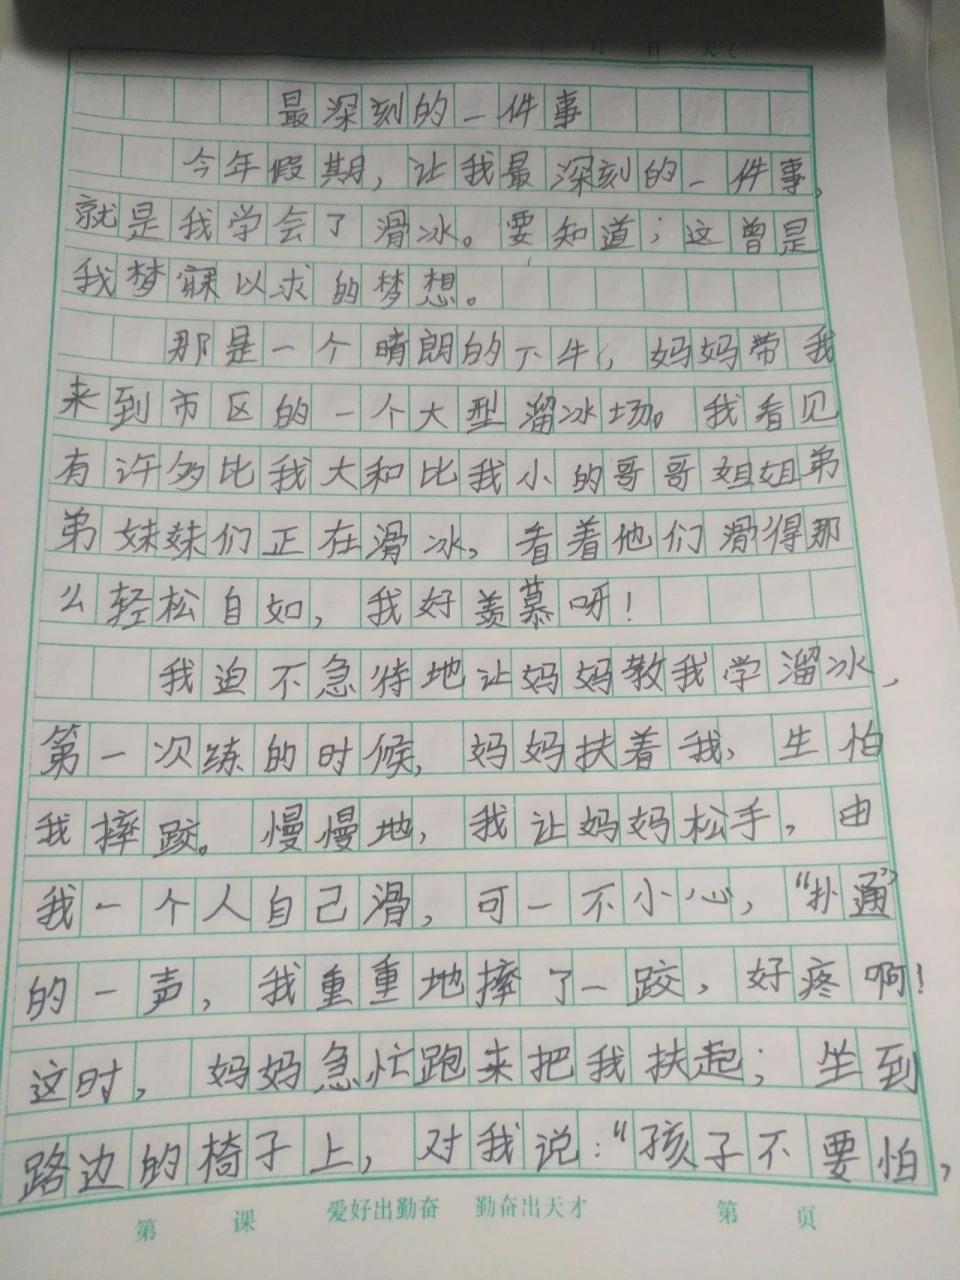 最深刻的一件事
今年假期，让我最深刻的一件事，
就是我学会了滑冰。要知道；这曾是
我梦寐以求的梦想。
那是一个晴朗的下午，妈妈带我
来到市区的一个大型溜冰场。我看见
有许多比我大和比我小的哥哥姐姐弟
弟妹妹们正在滑冰，看着他们滑得那
么轻松自如，我好羡慕呀！
我迫不急待地让妈妈教我学溜冰，
第一次练的时候，妈妈扶着我，生怕
我摔跤。慢慢地，我让妈妈松手，由
我一个人自己滑，可一不小心，“扑通”
的一声，我重重地摔了一跤，好疼啊！
这时，妈妈急忙跑来把我扶起；坐到
路边的椅子上，对我说：“孩子不要怕，
第 课 爱好出勤奋 勤奋出天才 第 页